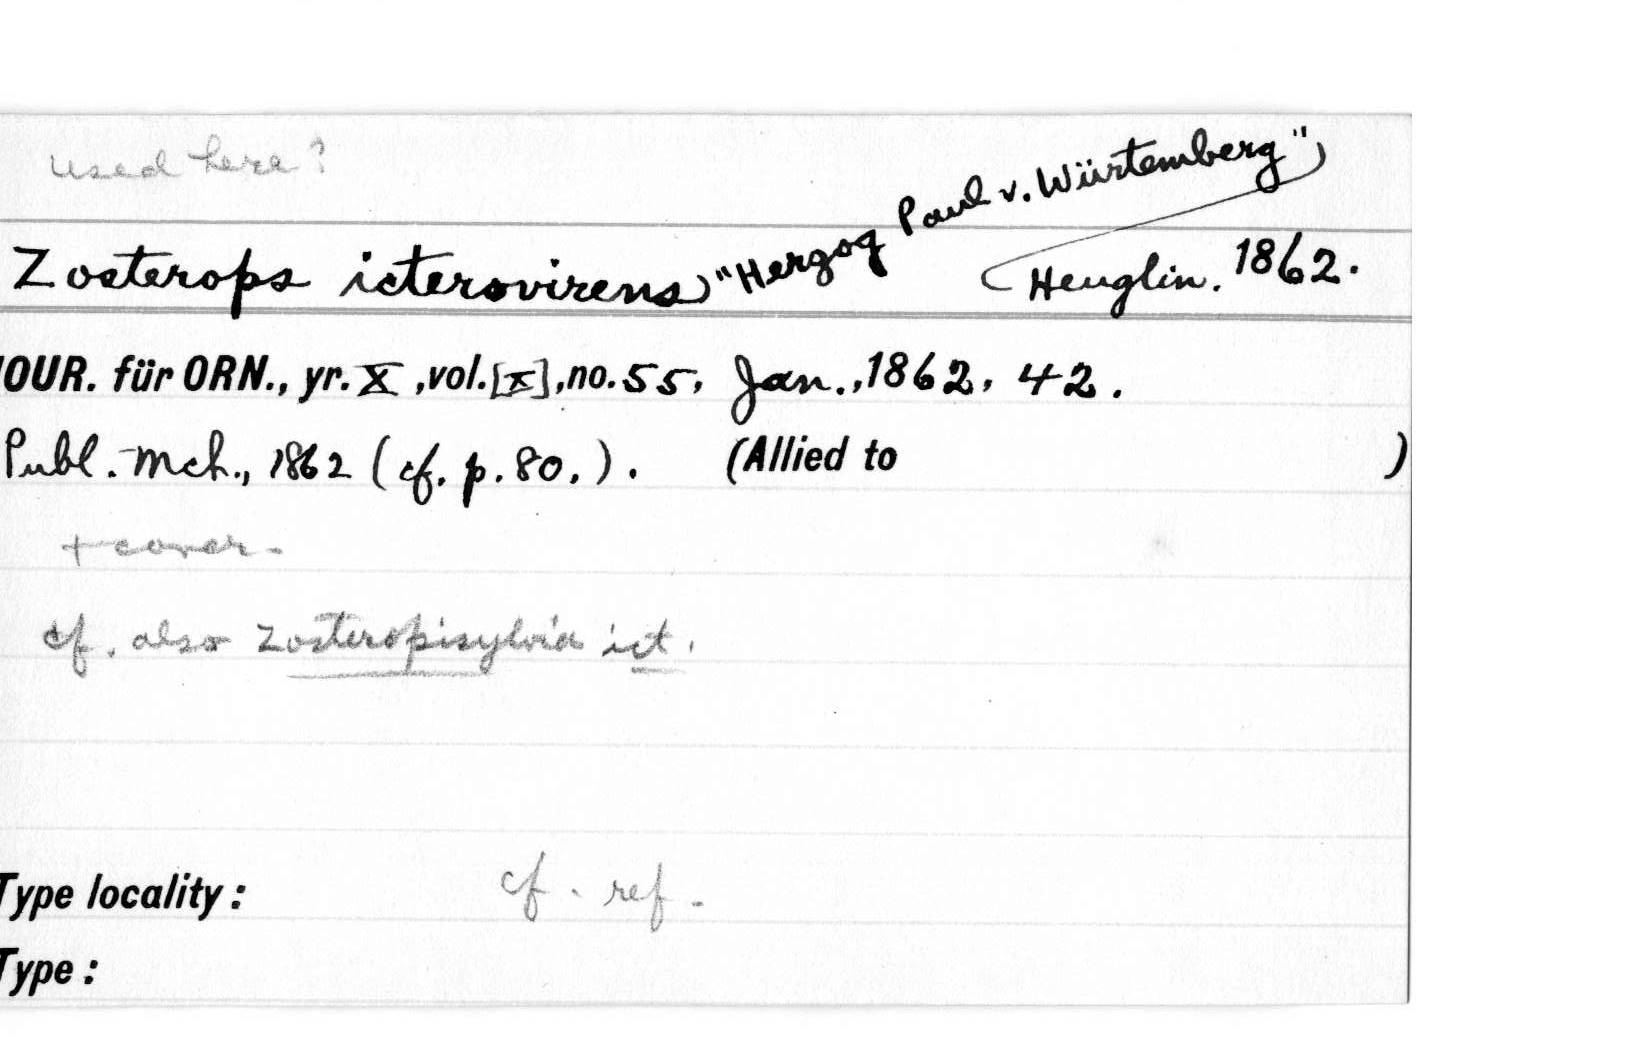 used here?
Zosterops icterovirens, "Herzog Paul v. Würtemberg", Heuglin. 1862.
JOUR. für ORN., yr. X, vol. [X], no. 55, Jan., 1862, 42.
Publ. - Mch., 1862 (cf. p. 80.). (Allied to )
+ cover.
cf. also Zosteropisylvia ict.
Type locality: cf. ref.
Type: